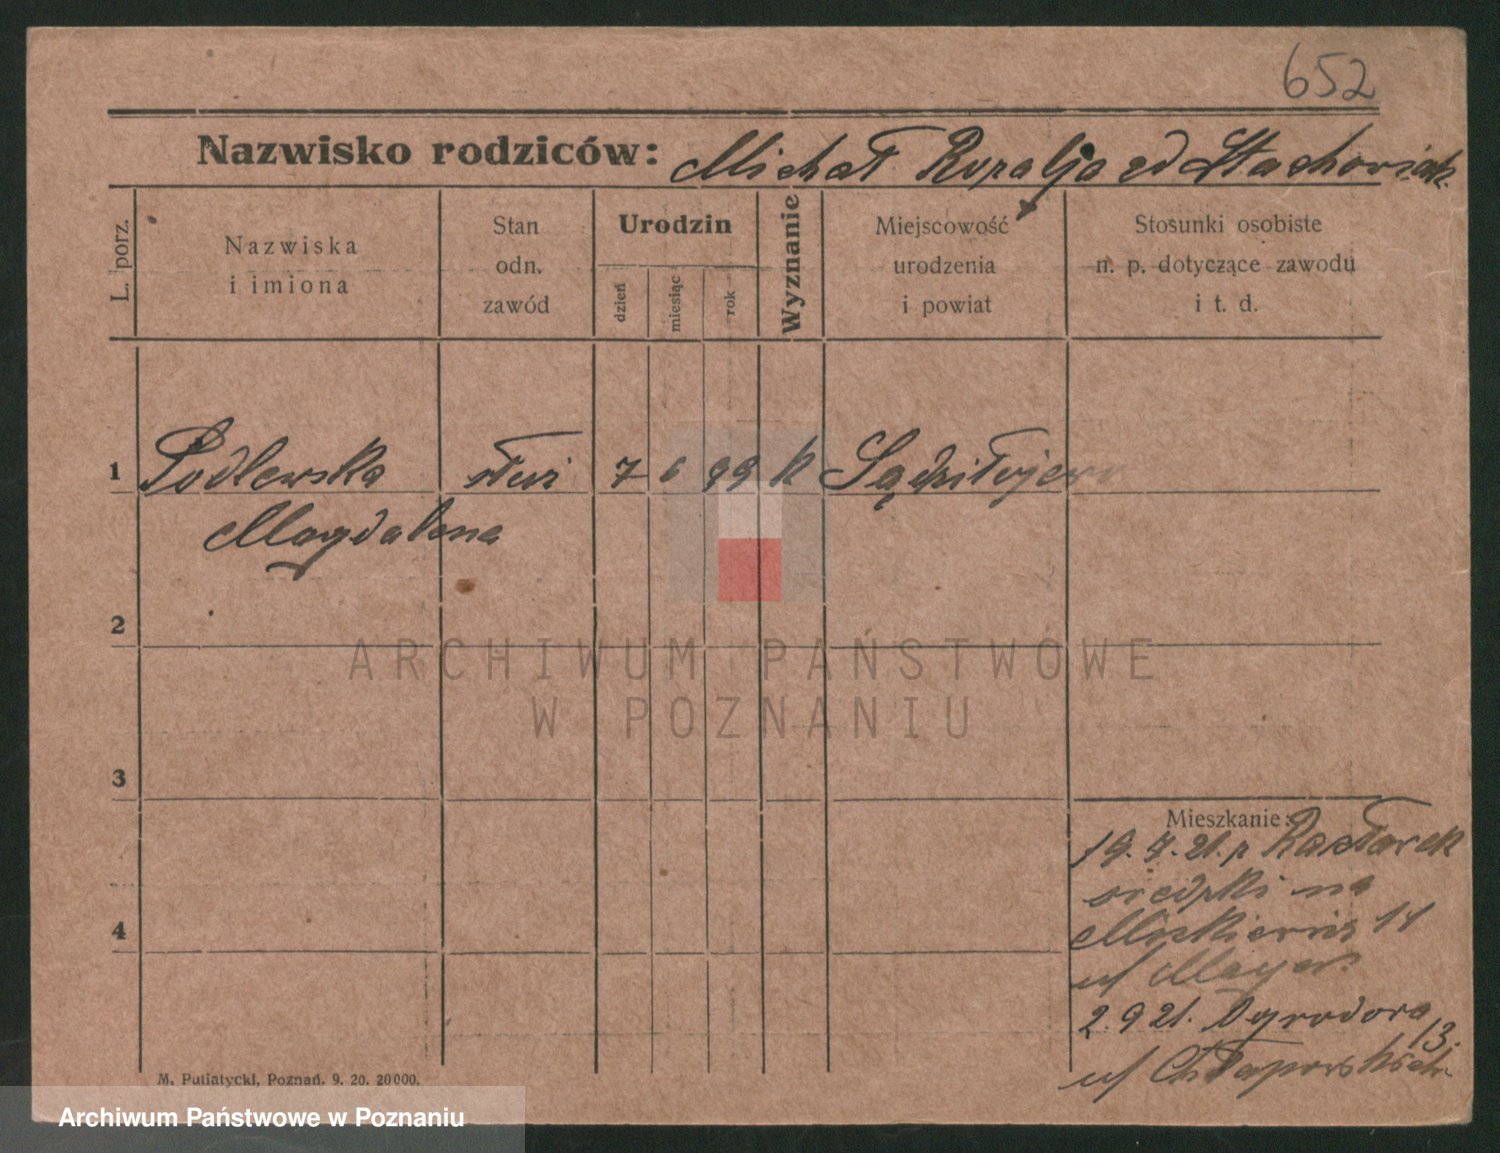 652
Nazwisko rodziców: Michał Rozalja zd Stachowiak
L. porz.
Nazwiska
i imiona
Stan
odn.
zawód
Urodzin
dzień
miesiąc
rok
Wyznanie
Miejscowość
urodzenia
i powiat
Stosunki osobiste
n. p. dotyczące zawodu
i t. d.
1 Podlewska służ 7 6 99 k
Magdalena
2
3
4
Mieszkanie:
19.7.21. p
na
14
u/ Mayer
2.9.21. Ogrodowa
13.
u/
M. Putiatycki, Poznań. 9. 20. 20000.
ARCHIWUM PAŃSTWOWE
W POZNANIU
Archiwum Państwowe w Poznaniu